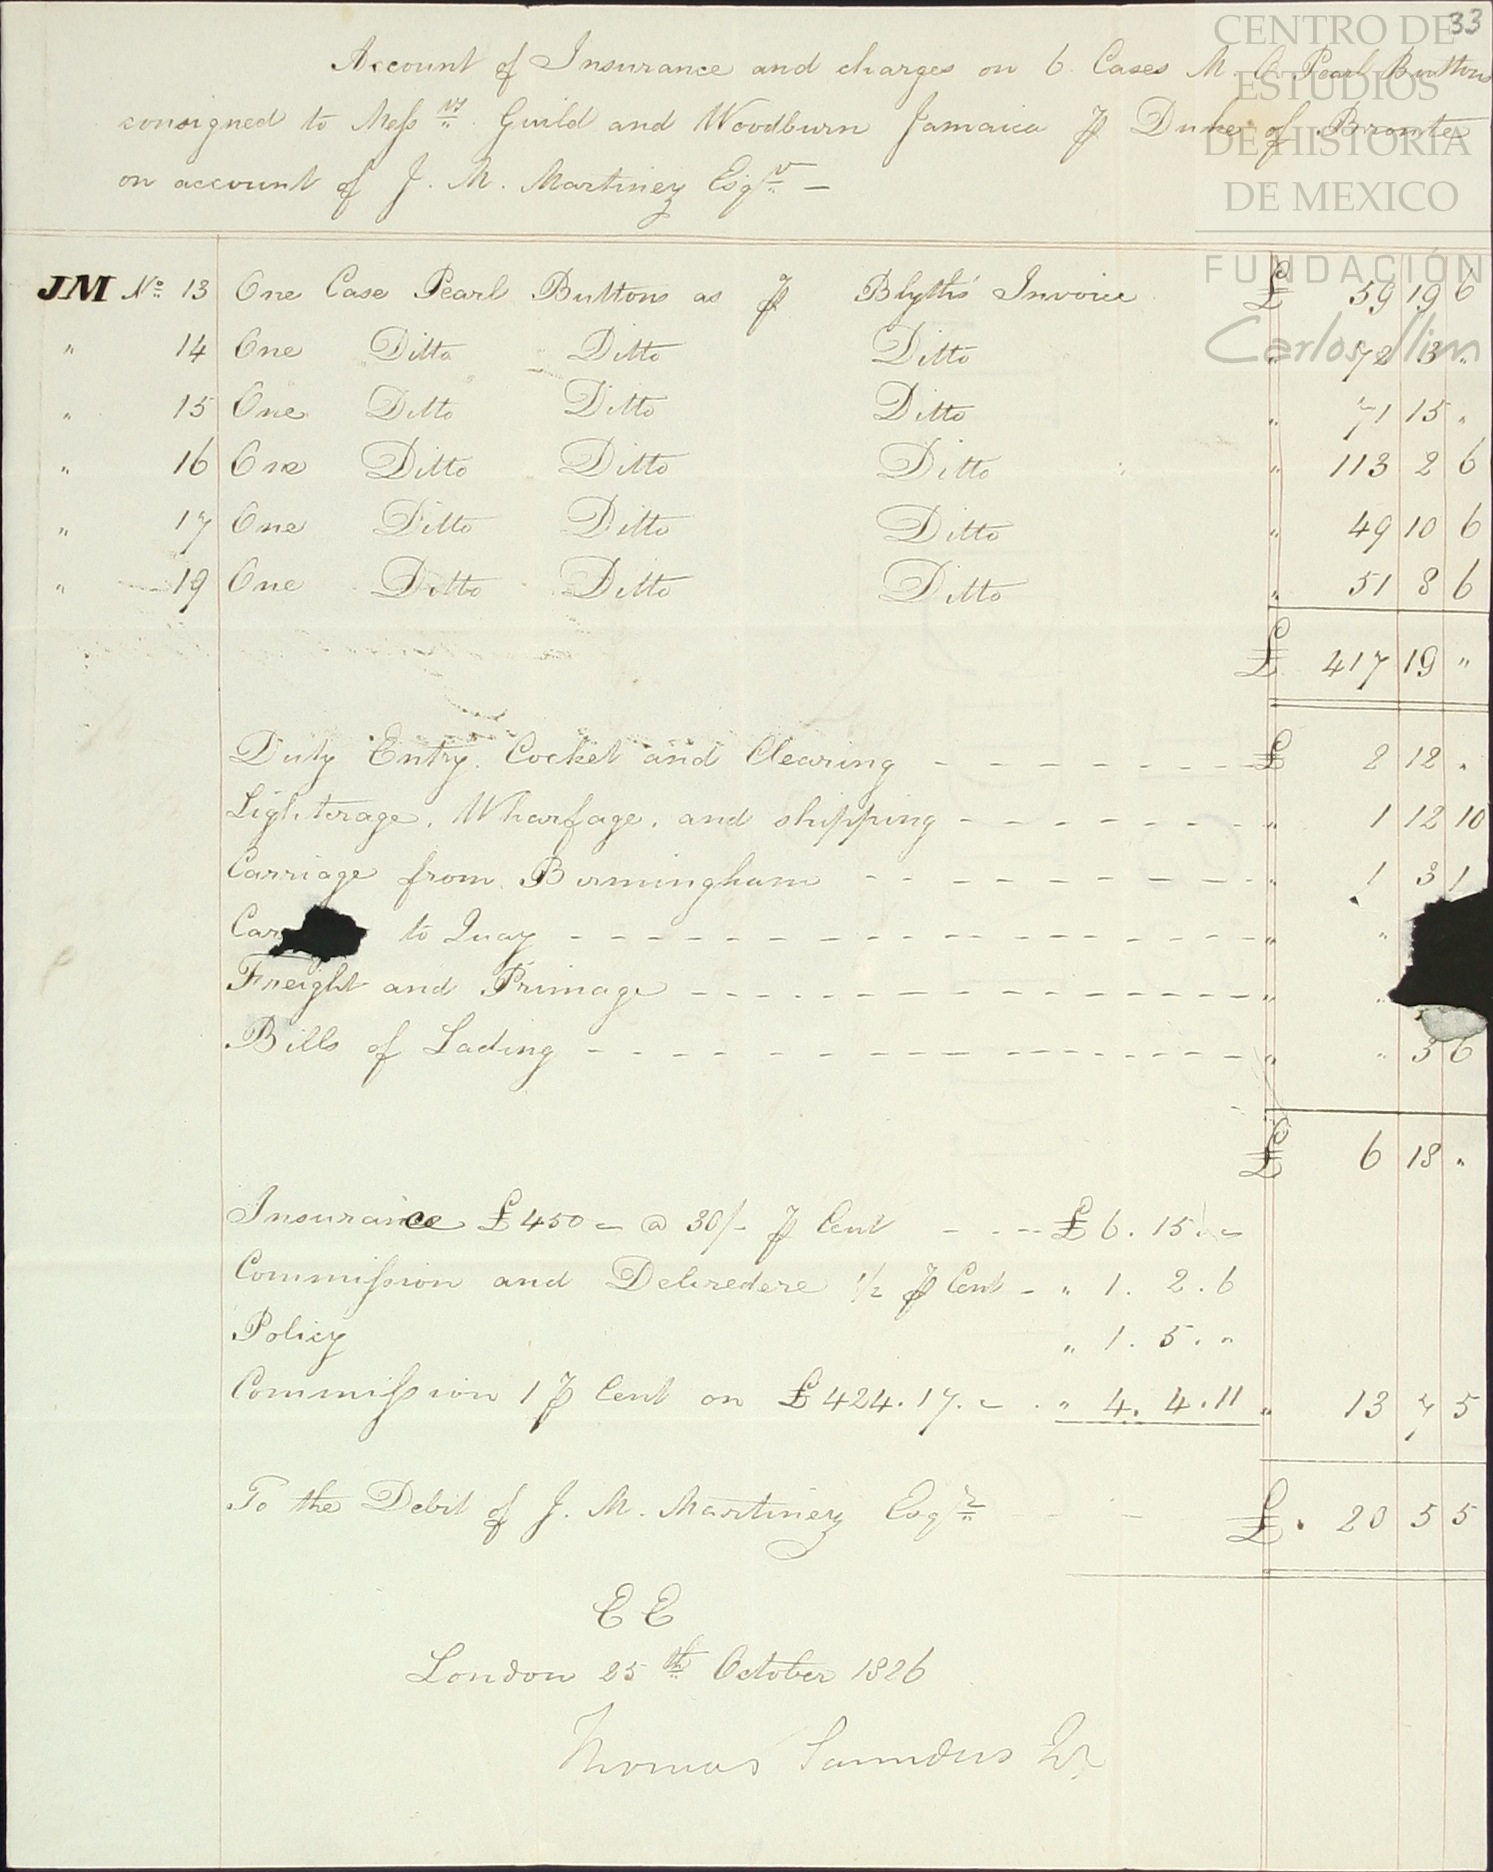 33
CENTRO DE
ESTUDIOS
DE HISTORIA
DE MEXICO
FUNDACIÓN
Carlos Slim
Account of Insurance and charges on 6 Cases M. O. Pearl Buttons
consigned to Messrs Guild and Woodburn Jamaica ℘ Duke of Bronte
on account of J. M. Martinez Esqr —
JM No 13 One Case Pearl Buttons as ℘ Blyth's Invoice £ 59 19 6
" 14 One Ditto Ditto Ditto " 72 3 "
" 15 One Ditto Ditto Ditto " 71 15 "
" 16 One Ditto Ditto Ditto " 113 2 6
" 17 One Ditto Ditto Ditto " 49 10 6
" 19 One Ditto Ditto Ditto " 51 8 6
£ 417 19 "
Duty Entry. Cocket and Clearing £ 2 12 "
Lighterage. Wharfage. and shipping " 1 12 10
Carriage from Birmingham " 1 3 1
Car to Quay " "
Freight and Primage " "
Bills of Lading " " 3 6
£ 6 18 "
Insurance £450 – @ 30/- ℘ Cent £6. 15. –
Commission and Delcredere 1/2 ℘ Cent – " 1. 2. 6
Policy " 1. 5. "
Commission 1 ℘ Cent on £424. 17. – " 4. 4. 11 " 13 7 5
To the Debit of J. M. Martinez Esqr £. 20 5 5
E E
London 25th October 1826
Thomas Saunders Jr